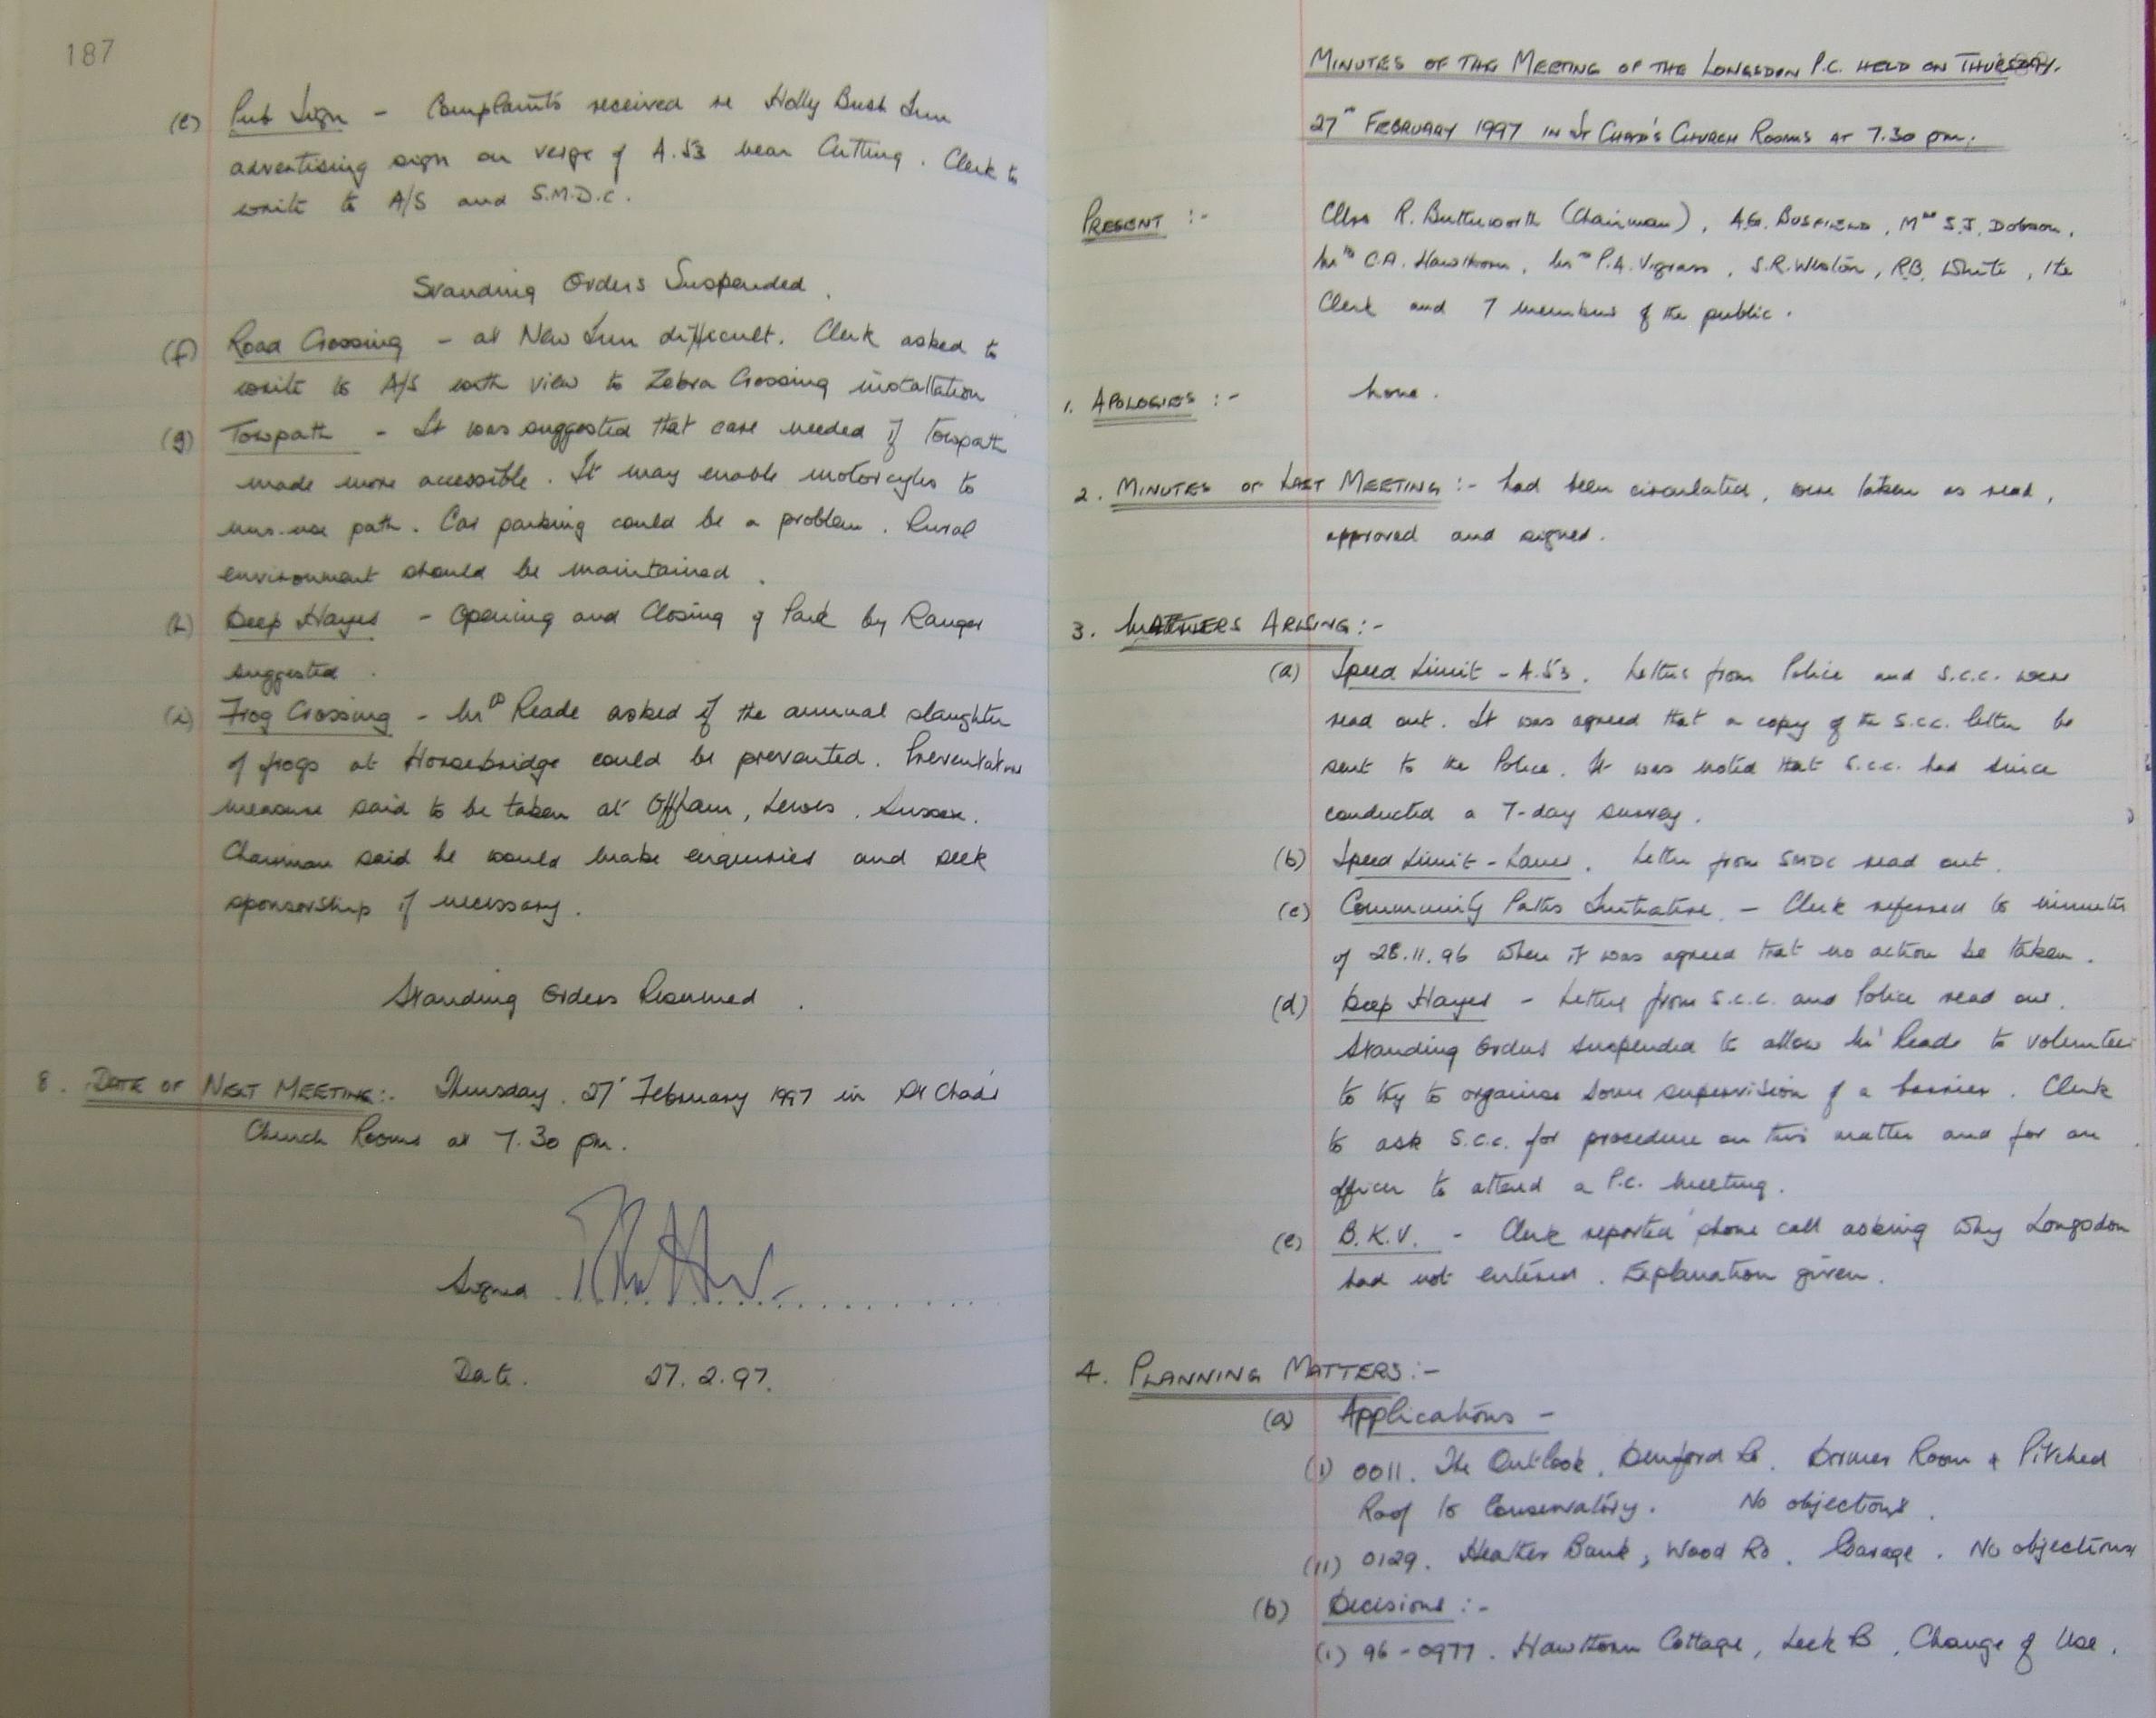 187
(e) Pub Sign - Complaints received re Holly Bush Inn
advertising sign on verge of A.53 near Cutting. Clerk to
write to A/S and S.M.D.C.
Standing Orders Suspended.
(f) Road Crossing - at New Inn difficult. Clerk asked to
write to A/S with view to Zebra Crossing installation
(g) Towpath - It was suggested that care needed if Towpath
made more accessible. It may enable motorcycles to
path. Car parking could be a problem. Rural
environment should be maintained.
(h) Deep Hayes - Opening and Closing of Park by Ranger
suggested.
(i) Frog Crossing - Reade asked if the annual slaughter
of frogs at Horsebridge could be prevented. Preventative
measure said to be taken at Offham, Lewes, Sussex.
Chairman said he would make enquiries and seek
sponsorship if necessary.
Standing Orders Resumed.
8. DATE OF NEXT MEETING:- Thursday. 27 February 1997 in St Chad's
Church Rooms at 7.30 pm.
Signed
Date. 27.2.97.
MINUTES OF THE MEETING OF THE LONGSDON P.C. HELD ON THURSDAY.
27th FEBRUARY 1997 IN ST CHAD'S CHURCH ROOMS AT 7.30 pm.
PRESENT :- Cllrs R. Butterworth (Chairman), A.G. BUSFIELD, Mrs S.J. Dobson,
Mrs C.A. Hawthorn, Mrs P.A. Vigrass, S.R. Weston, R.B. White, the
Clerk and 7 members of the public.
1. APOLOGIES :- None.
2. MINUTES OF LAST MEETING :- had been circulated, were taken as read,
approved and signed.
3. MATTERS ARISING :-
(a) Speed Limit - A.53. Letters from Police and S.C.C. were
read out. It was agreed that a copy of the S.C.C. letter be
sent to the Police. It was noted that S.C.C. had since
conducted a 7-day survey.
(b) Speed Limit - Lanes. Letter from SMDC read out.
(c) Community Paths Initiative. - Clerk referred to minutes
of 28.11.96 when it was agreed that no action be taken.
(d) Deep Hayes - Letters from S.C.C. and Police read out.
Standing Orders suspended to allow Mr Reade to volunteer
to try to organise some supervision of a barrier. Clerk
to ask S.C.C. for procedure on this matter and for an
officer to attend a P.C. Meeting.
(e) B.K.V. - Clerk reported 'phone call asking why Longsdon
had not entered. Explanation given.
4. PLANNING MATTERS :-
(a) Applications -
(i) 0011. The Outlook, Denford Rd. Dormer Room + Pitched
Roof to Conservatory. No objections.
(ii) 0129. Heather Bank, Wood Rd. Garage. No objections
(b) Decisions :-
(i) 96-0977. Hawthorn Cottage, Leek R. Change of Use.